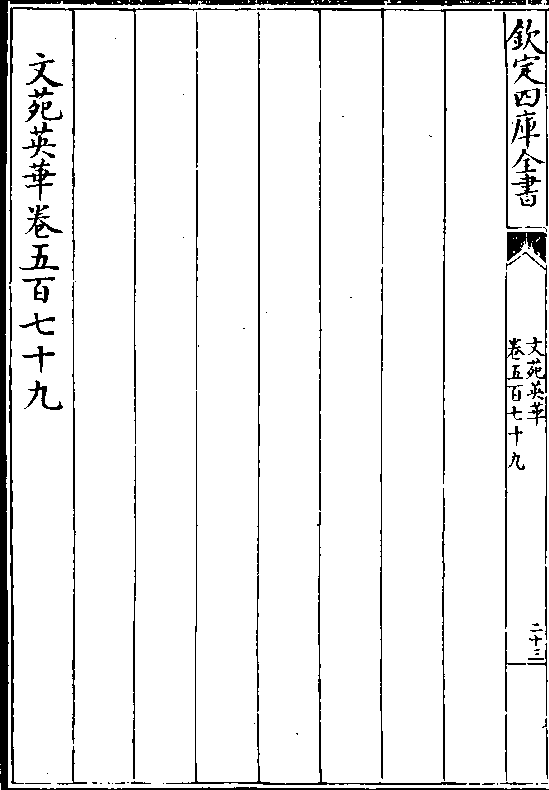 欽定四庫全書
文苑英華
卷五百七十九
二十三
文苑英華卷五百七十九